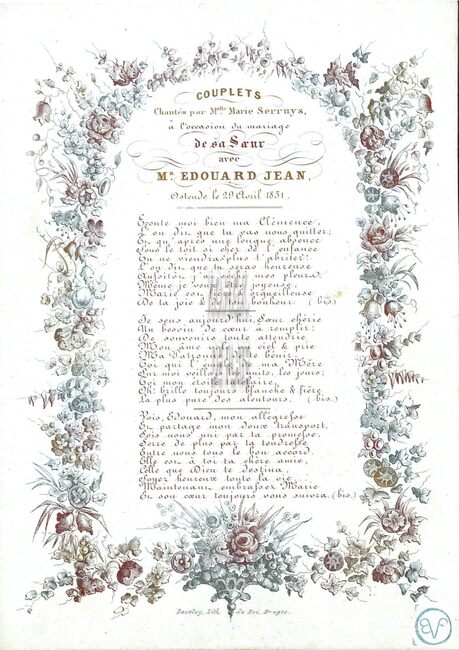 COUPLETS
Chantés par Melle Marie Serruys,
à l'occasion du mariage
de sa Sœur
avec
Mr. EDOUARD JEAN,
Ostende le 29 Avril 1851
Ecoute moi bien ma Clémence,
L'on dit que tu vas nous quitter;
Et qu'après une longue absence
Sous le toit si cher de l'enfance
Tu ne viendras plus t'abriter!
L'on dit que tu seras heureuse
Aussitôt j'ai séché mes pleurs
Même je joyeuse,
Marie est orgueilleuse
De ta joie & bonheur. (bis)
Je sens aujourd'hui Sœur chérie
Un besoin de cœur à remplir;
De souvenirs toute attendrie
Mon âme vole au ciel & prie
Ma Patronne te bénir;
Toi qui ma Mère
Sur moi veillais les nuits, les jours;
Toi mon étoile
Oh! brille toujours blanche & fière
La plus pure des alentours. (bis.)
Vois, Edouard, mon allégresse
Et partage mon doux transport,
Sois nous uni par ta promesse,
Serre de plus par ta tendresse
Entre nous tous le bon accord.
Elle est à toi ta chère amie,
Celle que Dieu te destina,
Soyez heureux toute la vie,
Maintenant embrassez Marie
Et son cœur toujours vous suivra. (bis.)
Daveluy, Lith. du Roi, Bruges.